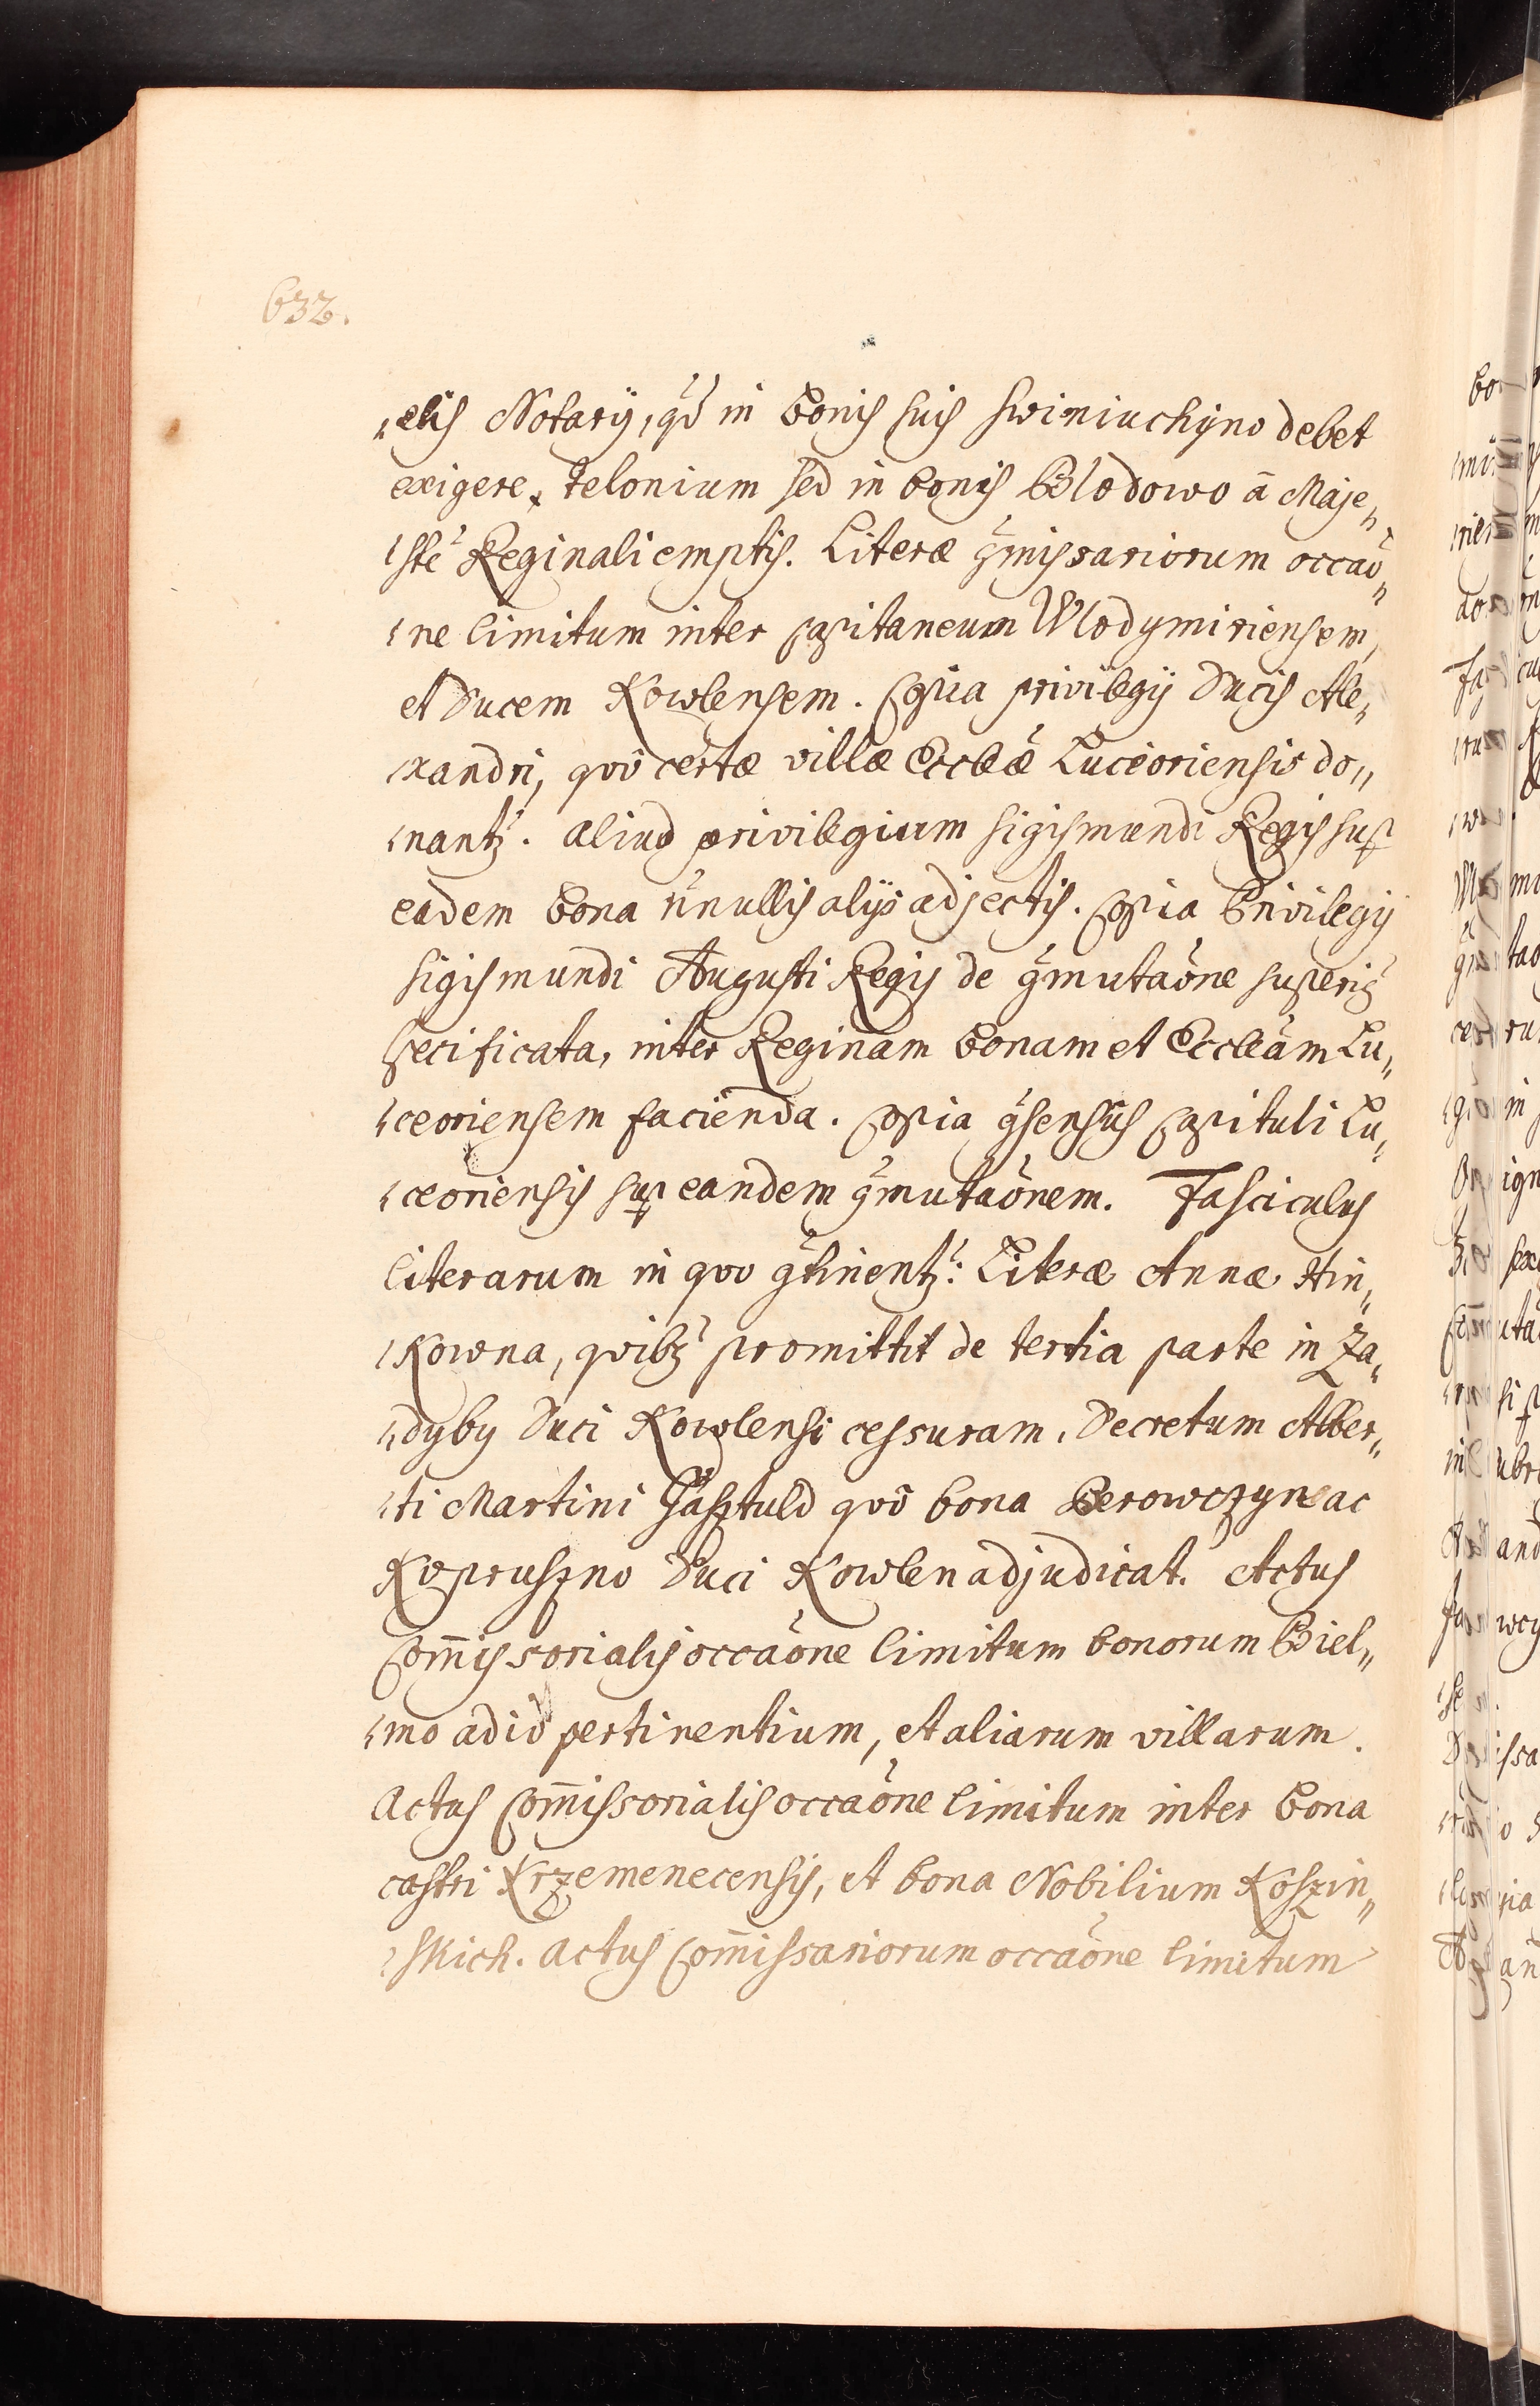 632.
„elis Notarij, qd̃ in bonis suis Swiniuchyno debet
exigere telonium sed in bonis Blodowo ā Maje„
„stẽ Reginali emptis. Literæ 9missariorum occaõ„
„ne limitum inter capitaneum Wlodymiriensem,
et Ducem Kowlensem. Copia privilegij Ducis Ale„
„xandri, quõ certæ villæ Eccl̃æ Luceoriensis do„
„nantz̃. aliud privilegium Sigismundi Regis sup
eadem bona ñnullis alijs adjectis. Copia Privilegij
Sigismundi Augusti Regis de 9mutaõne superi9
specificata, inter Reginam Bonam et Eccl̃eam Lu„
„ceoriensem facienda. Copia 9sensus Capituli Lu„
„ceoriensis sup eandem 9mutaõnem. Fasciculus
literarum in quo 9tinentz̃: Literæ Annæ Hin„
„kowna, quibz̃ promittit de tertia parte in Za„
„dyby Duci Kowlensi cessuram. Decretum Alber„
„ti Martini Gasztuld quõ bona Berowczyn ac
Kopruszno Duci Kowlen adjudicat. Actus
Com̃issorialis occaõne limitum bonorum Biel„
„mo ad id pertinentium, et aliarum villarum.
Actus Com̃issorialis occaõne limitum inter bona
castri Krzemenecensis, et bona Nobilium Koszin„
„skich. Actus Com̃issariorum occaõne limitum